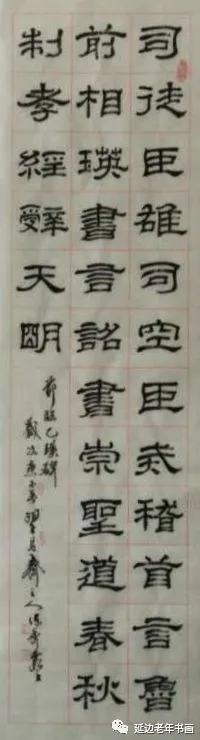 司徒臣雄司空臣戒稽首言魯
前相瑛書言詔書崇聖道春秋
制孝經辤天明
節臨乙瑛碑
歲次庚子年
延边老年书画